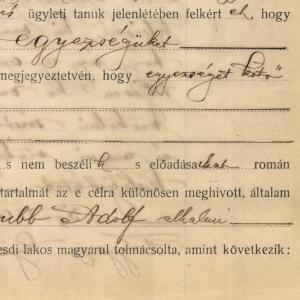 és ügyleti tanuk jelenlétében felkért ek, hogy
egyezségüket
megjegyeztetvén, hogy egyezséget kötő
s nem beszéli k s előadásukat román
tartalmát az e célra különösen meghivott, általam
Adolf alkalmi
esdi lakos magyarul tolmácsolta, amint következik: